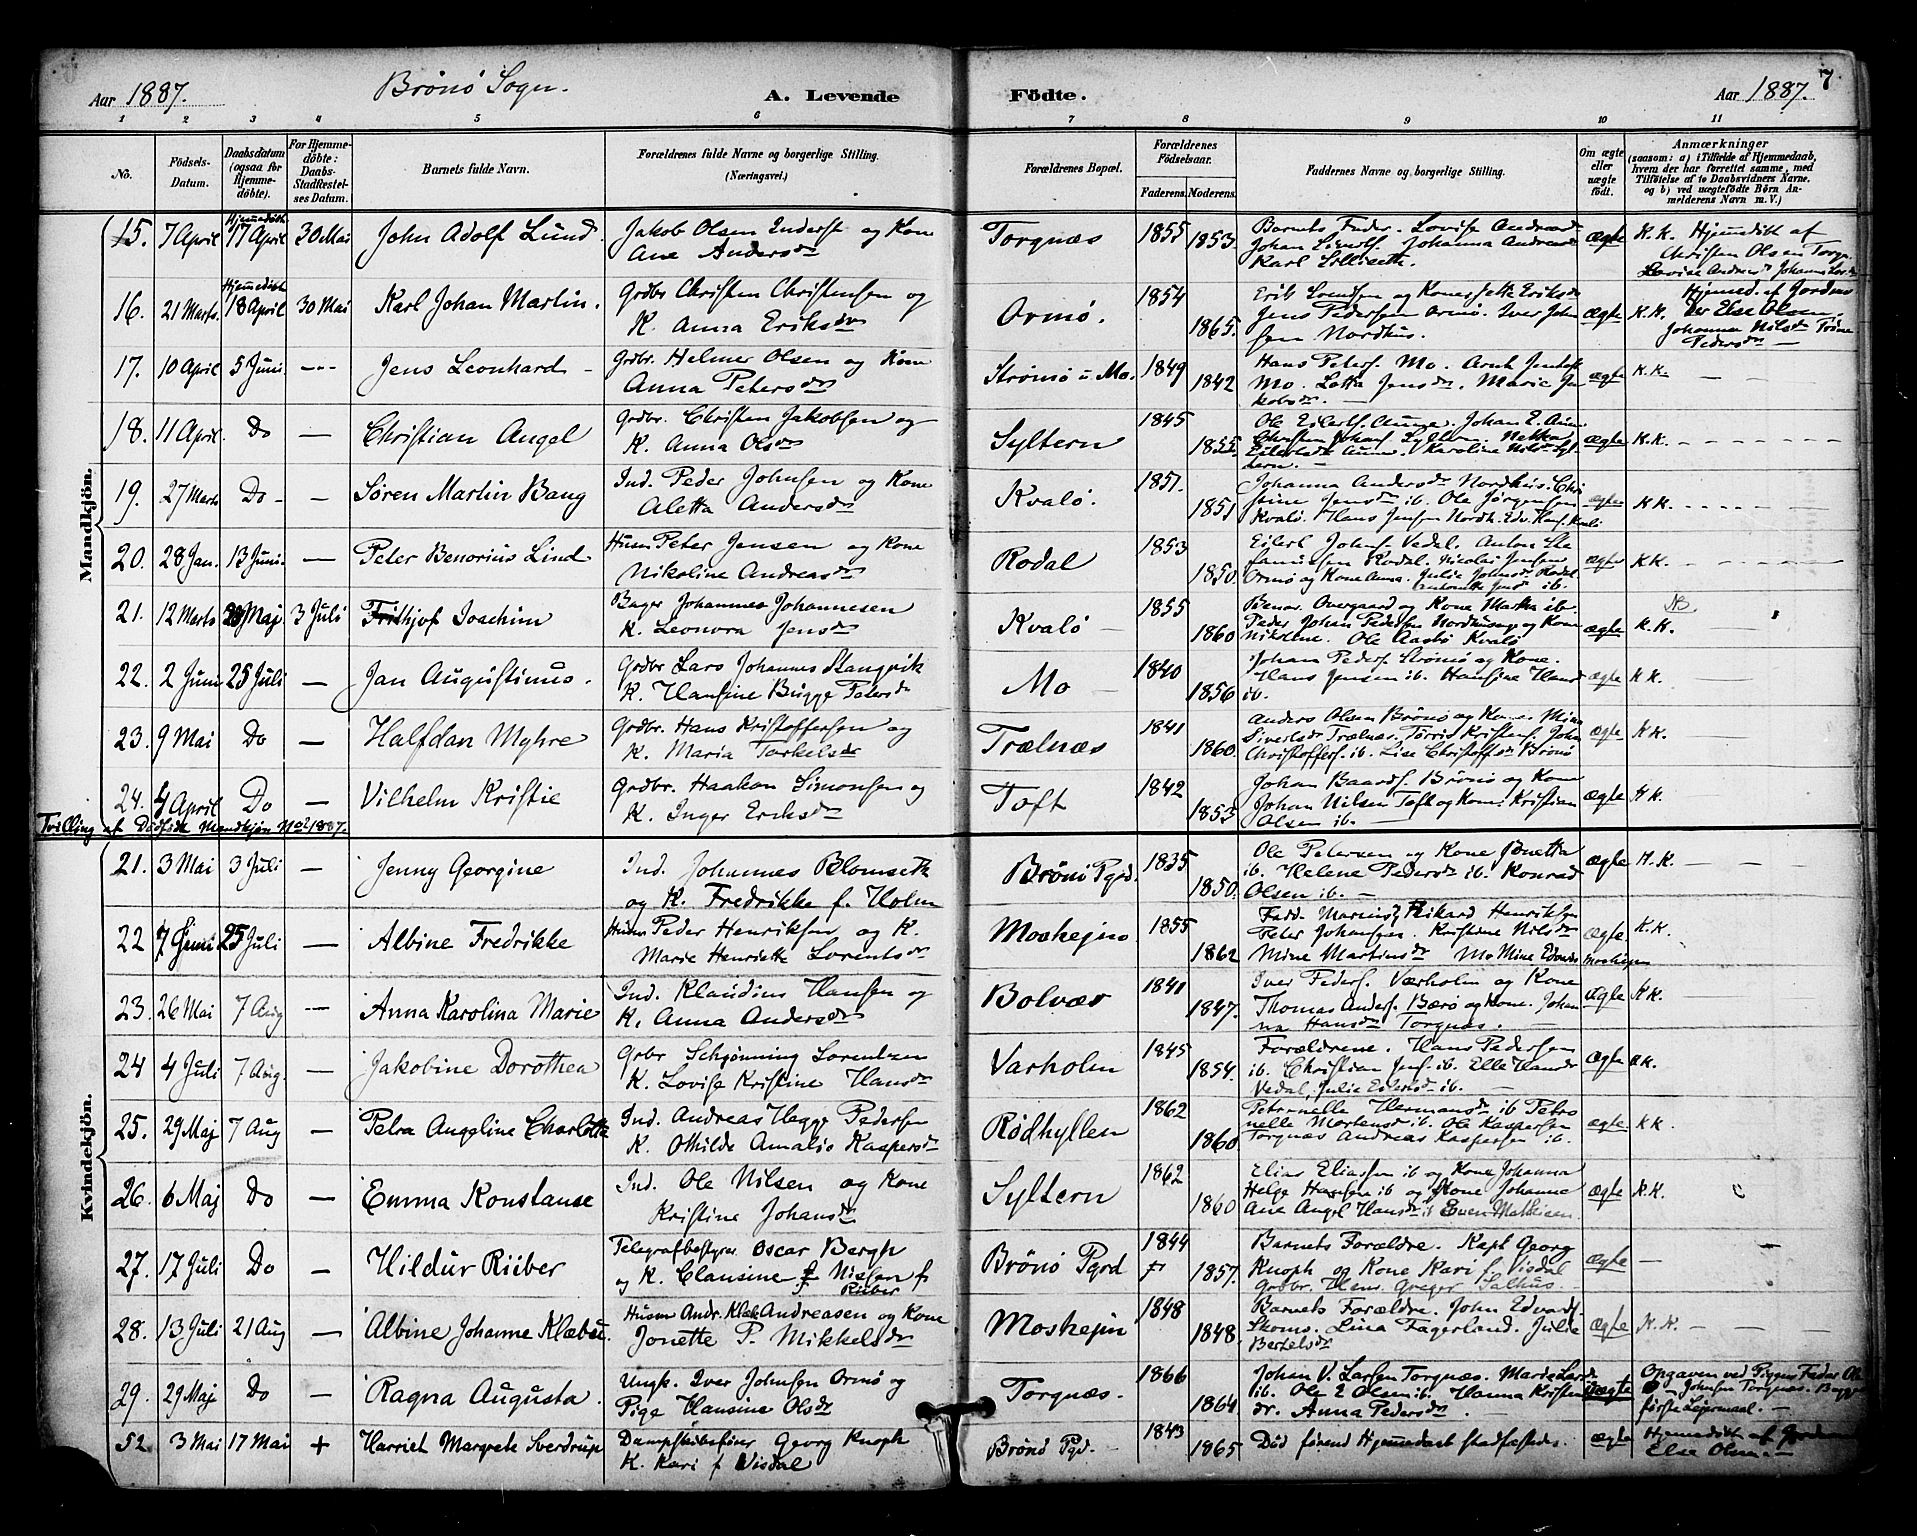 Aar 1887. Brønø Sogn. A. Levende Fødte. Aar 1887. 7
1 2 3 4 5 6 7 8 9 10 11
No. Födsels-Datum. Daabsdatum (ogsaa for Hjemme-döbte). For Hjemme-döbte: Daabs-Stadfæstel-ses Datum. Barnets fulde Navn. Forældrenes fulde Navne og borgerlige Stilling. (Næringsvei.) Forældrenes Bopæl. Forældrenes Födselsaar. Faderens. Moderens. Faddernes Navne og borgerlige Stilling. Om ægte eller uægte födt. Anmærkninger (saasom: a) i Tilfælde af Hjemmedaab, hvem der har forrettet samme, med Tilföielse af to Daabsvidners Navne, og b) ved uægtefödte Börn An-melderens Navn m. V.)
Mandkjön.
15. 7 April Hjemmedøbt 17 April 30 Mai John Adolf Lund. Jakob Olsen Enderst og Kone
Ane Andersdr Torgnæs 1855 1853 Barnets Fader. Lovise Andreasdr
Johan Eilertf. Johanna Andreasdr
Karl Lilliseth. ægte K.K. Hjemdøbt af
Christen Olsen Torgn.
16. 21 Marts. Hjemmedøbt 18 April 30 Mai Karl Johan Martin. Grdbr Christen Christensen og
K. Anna Eriksdr Ormø. 1854 1865. Erik Svendsen og Kone Jette Eriksdr
Jens Pedersen Ormø. Iver John
sen Nordhus. ægte K.K. Hjemed. af Jordmo
der Else Olsen.
Johanna Nilsdr Trine
Pedersdr
17. 10 April 5 Juni — Jens Leonhard Grdbr. Helmer Olsen og Kone
Anna Petersdr Strømø u. Mo. 1849 1842 Hans Petersf. Mo. Arnt Jentoft
Mo. Lotta Jensdr. Marie Ja
kobsdr. ægte K.K.
18. 11 April. Do — Christian Angel Grdbr. Christen Jakobsen og
K. Anna Olsdr Syltern 1845 1855. Ole Eilertf. Aune. Johan E. Aune
Christen Johanf. Syltern. Karoline Nilsdr Syl
tern. ægte K.K.
19. 27 Marts Do — Søren Martin Bang Ind. Peder Johnsen og Kone
Aletta Andersdr Kvalø. 1851. 1851 Johanna Andersdr Nordhus. Chri
stine Jensdr ib. Ole Jørgensen
Kvalø. Hans Jensen Nordh. Edv. Hansf. Kvalø ægte K K.
20. 28 Jan. 13 Juni. — Peter Benorius Lind Husm Peter Jensen og Kone
Nikoline Andreasdr Rodal 1853 1850. Eilert Johnf. Vedal. Anton Ste
fansen Rodal. Nicolai Jensen
Ormø og Kone Anna. Julie Johnsdr Rodal ægte KK.
21. 12 Marts Maj 3 Juli Frithjof Joachim Bager Johannes Johannesen
K. Leonora Jensdr Kvalø 1855 1860 Benor. Overgaard og Kone Marka ib.
Peder Johan Pedersen Nordhus og Kone
Nikoline. Ole Aasbø Kvalø ægte NB. K.K.
22. 2 Juni 25 Juli — Jan Augustinus. Grdbr Lars Johannes Stangvik
K. Hansine Bugge Petersdr Mo 1840 1856 Johan Pedersf. Strømø og Kone.
Hans Jensen ib. Hansine Hansd
ib. ægte K K.
23. 9 Mai Do — Halfdan Myhre Grdbr. Hans Kristoffersen og
K. Maria Torkelsdr Trælnæs 1841 1860. Anders Olsen Brønø og Kone. Mina
Sivertsdr Trælnæs. Torris Kristensf. John
Christoffersf. ib. Lise Christoffsdr Brønø ægte K K.
24. 4 April Do — Vilhelm Kristie Grdbr. Haakon Simonsen og
K. Inger Eriksdr Toft 1842 1853 Johan Baardsf. Brønø og Kone
Johan Nilsen Toft og Kone Kristian
Olsen ib. ægte K K.
Tvilling af Dødfødt Mandkjøn No 2 1887.
Kvindekjön.
21. 3 Mai 3 Juli — Jenny Georgine Ind. Johannes Blomseth
og K. Fredrikke f. Holm Brønø Pgrd. 1835 1850. Ole Petersen og Kone Jonetta
ib. Helene Pedersdr ib. Konrad
Olsen ib. ægte K.K.
22 7 Juni 25 Juli — Albine Fredrikke Husm Peder Henriksen og K.
Marie Henriette Lorentsdr Moshejno 1855 1862 Fadd. Marius Rikard Henriksen
Peter Johansen. Kristine Nilsdr
Mine Martinsdr Mo Mine Edvardsd Moshejen ægte K.K.
23. 26 Mai 7 Aug — Anna Karolina Marie Ind. Klaudius Hansen og
K. Anna Andersdr Bolvær 1841 1847. Iver Pedersf. Værholm og Kone
Thomas Andersf. Bærø og Kone. Johan
na Hansdr Torgnæs. ægte K K.
24 4 Juli 7 Aug. — Jakobine Dorothea Grbr Schjønning Lorentzen
K. Lovise Kristine Hansdr Varholm 1845 1854. Forældrene. Hans Pedersen
ib. Christian Jensf. ib. Elle Hansdr
Vedal, Julie Eilertsdr ib. ægte K.K.
25. 29 Maj 7 Aug — Petra Angeline Charlotte Ind. Andreas Hegge Pedersen
K. Othilde Amalie Kaspersdr Rødhyllen 1862 1860 Petronelle Hermansdr ib Petro
nelle Mortensdr ib. Ole Kaspersen
Torgnæs Andreas Kaspersen ib. ægte. KK.
26. 6 Maj Do — Emma Konstanse Ind. Ole Nilsen og Kone
Kristine Johansdr Syltern 1862 1860 Elias Eliassen ib og Kone Johanna
Helge Hansen ib og Kone Johanne
Ane Angel Hansdr ib Even Mathisen ægte K.K.
27. 17 Juli Do — Hildur Riiber Telegrafbestyrer Oscar Bergh
og K. Clausine f Nissen f.
Riiber Brønø Pgrd 1844 1857. Barnets Forældre. Kapt Georg
Knoph og Kone Kari f. Visdal
Grdbr. Hans Greger Salhus. ægte —
28. 13 Juli 21 Aug — Albine Johanne Klæbu Husm Andr. Klæb Andreasen og Kone
Jonette P. Mikkelsdr Moshejin 1848 1848. Barnets Forældre. John Edvardf.
Skoms. Lina Fagerland. Julie
Bertelsdr ægte K.K.
29. 29 Maj Do — Ragna Augusta Ungk. Iver Johnsen Ormø og
Pige Hansine Olsdr Torgnæs. 1866 1864 Johan V. Larsen Torgnæs. Marie Larsd
ib. Ole E Olsen ib. Hanna Kristens
dr. Anna Pedersdr. uægte Opgaven ved Pigens Fader Ole
Johnsen Torgnæs. Begges
første Lejermaal.
52. 3 Mai 17 Mai + Harriet Margrete Sverdrup Dampskibsfører Georg Knoph
K. Kari f Visdal Brønø Pgd. 1843 1865 Død førend Hjemmedaab stadfæstedes. ægte Hjemedøbt af Jordmo
Else Olsen.